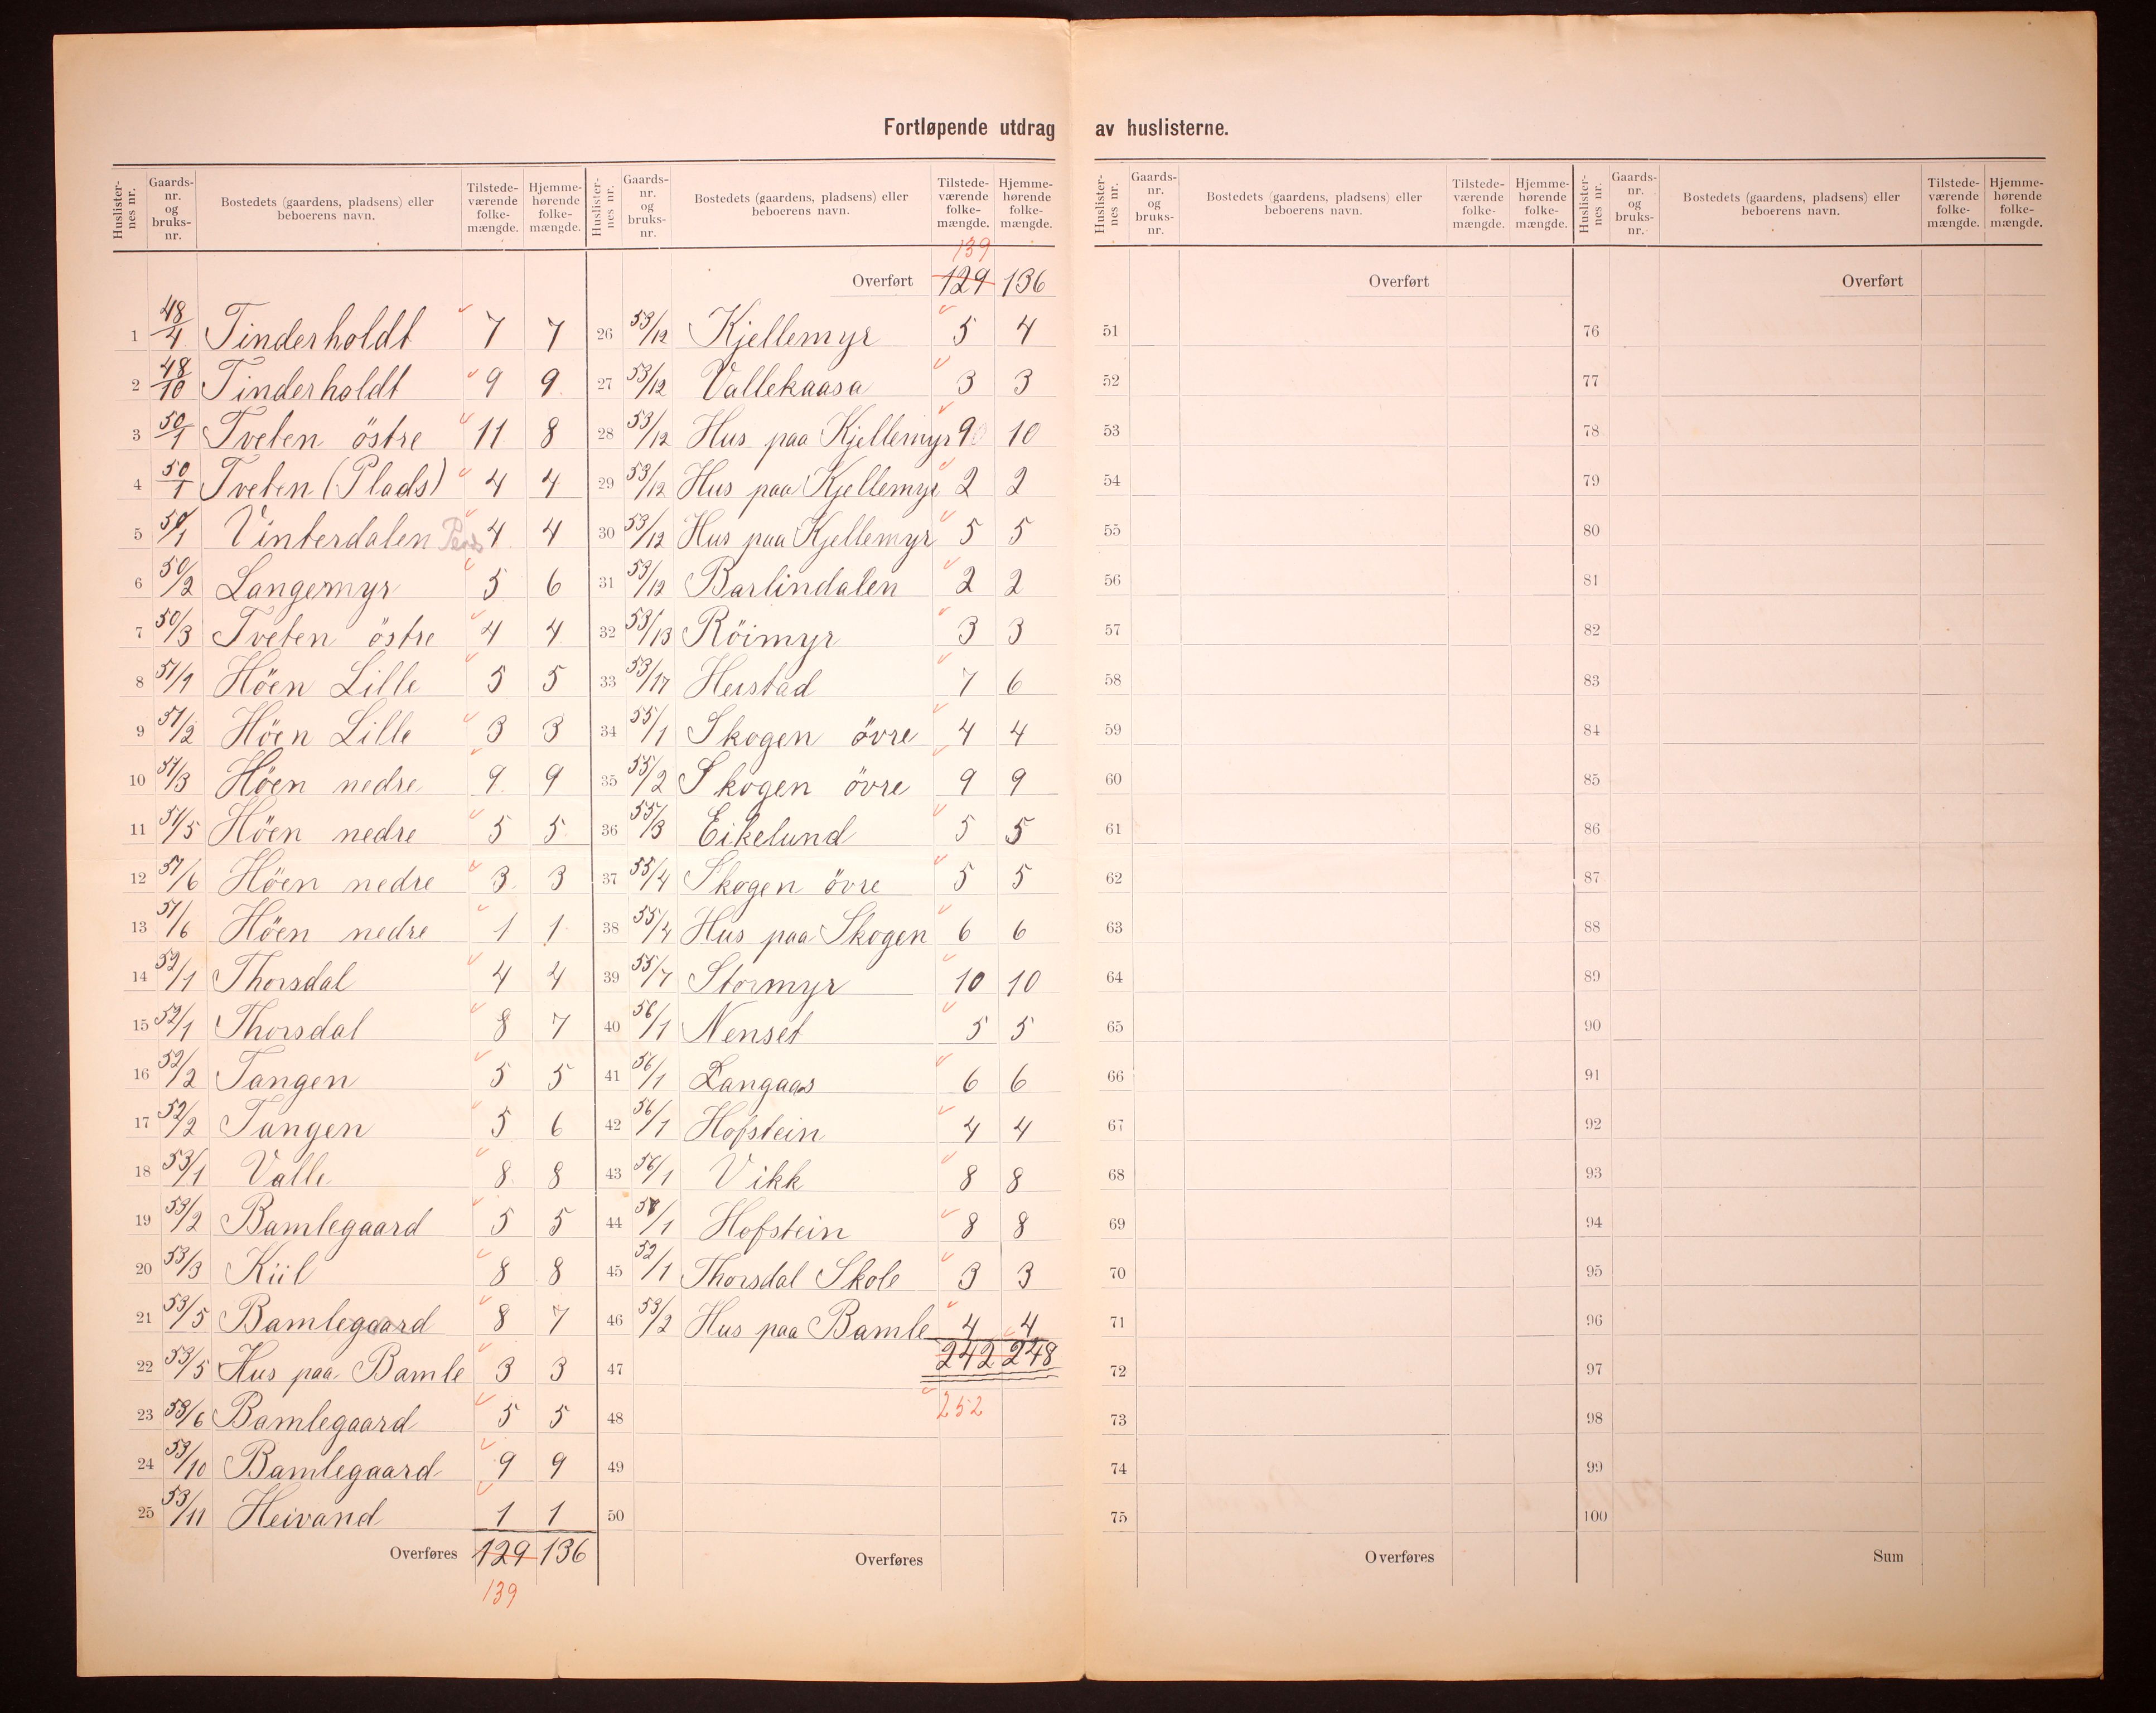 Fortløpende utdrag av huslisterne.
Huslisternes nr. Gaardsnr. og bruksnr. Bostedets (gaardens, pladsens) eller beboerens navn. Tilstedeværende folkemængde. Hjemmehørende folkemængde.
1 48/4 Tinderholdt 7 7
2 48/10 Tinderholdt 9 9
3 50/1 Tveten östre 11 8
4 50/1 Tveten (Plads) 4 4
5 50/1 Vinterdalen 4 4
6 50/2 Langemyr 5 6
7 50/3 Tveten östre 4 4
8 51/1 Höen Lille 5 5
9 51/2 Höen Lille 3 3
10 51/3 Höen nedre 9 9
11 51/5 Höen nedre 5 5
12 51/6 Höen nedre 3 3
13 51/6 Höen nedre 1 1
14 52/1 Thorsdal 4 4
15 52/1 Thorsdal 8 7
16 52/2 Tangen 5 5
17 52/2 Tangen 5 6
18 53/1 Valle 8 8
19 53/2 Bamlegaard 5 5
20 53/3 Kiil 8 8
21 53/5 Bamlegaard 8 7
22 53/5 Hus paa Bamle 3 3
23 53/6 Bamlegaard 5 5
24 53/10 Bamlegaard 9 9
25 53/11 Heivand 1 1
Overføres 129 136
139
Huslisternes nr. Gaardsnr. og bruksnr. Bostedets (gaardens, pladsens) eller beboerens navn. Tilstedeværende folkemængde. Hjemmehørende folkemængde.
139
Overført 129 136
26 53/12 Kjellemyr 5 4
27 53/12 Vallekaasa 3 3
28 53/12 Hus paa Kjellemyr 9 10
29 53/12 Hus paa Kjellemyr 2 2
30 53/12 Hus paa Kjellemyr 5 5
31 53/12 Barlindalen 2 2
32 53/13 Röimyr 3 3
33 53/17 Heistad 7 6
34 55/1 Skogen övre 4 4
35 55/2 Skogen övre 9 9
36 55/3 Eikelund 5 5
37 55/4 Skogen övre 5 5
38 55/4 Hus paa Skogen 6 6
39 55/7 Stormyr 10 10
40 56/1 Nenset 5 5
41 56/1 Langaas 6 6
42 56/1 Hofstein 4 4
43 56/1 Vikk 8 8
44 58/1 Hofstein 8 8
45 52/1 Thorsdal Skole 3 3
46 53/2 Hus paa Bamle 4 4
47 242 248
48 252
49
50
Overføres
Huslisternes nr. Gaardsnr. og bruksnr. Bostedets (gaardens, pladsens) eller beboerens navn. Tilstedeværende folkemængde. Hjemmehørende folkemængde.
Overført
51
52
53
54
55
56
57
58
59
60
61
62
63
64
65
66
67
68
69
70
71
72
73
74
75
Overføres
Huslisternes nr. Gaardsnr. og bruksnr. Bostedets (gaardens, pladsens) eller beboerens navn. Tilstedeværende folkemængde. Hjemmehørende folkemængde.
Overført
76
77
78
79
80
81
82
83
84
85
86
87
88
89
90
91
92
93
94
95
96
97
98
99
100
Sum